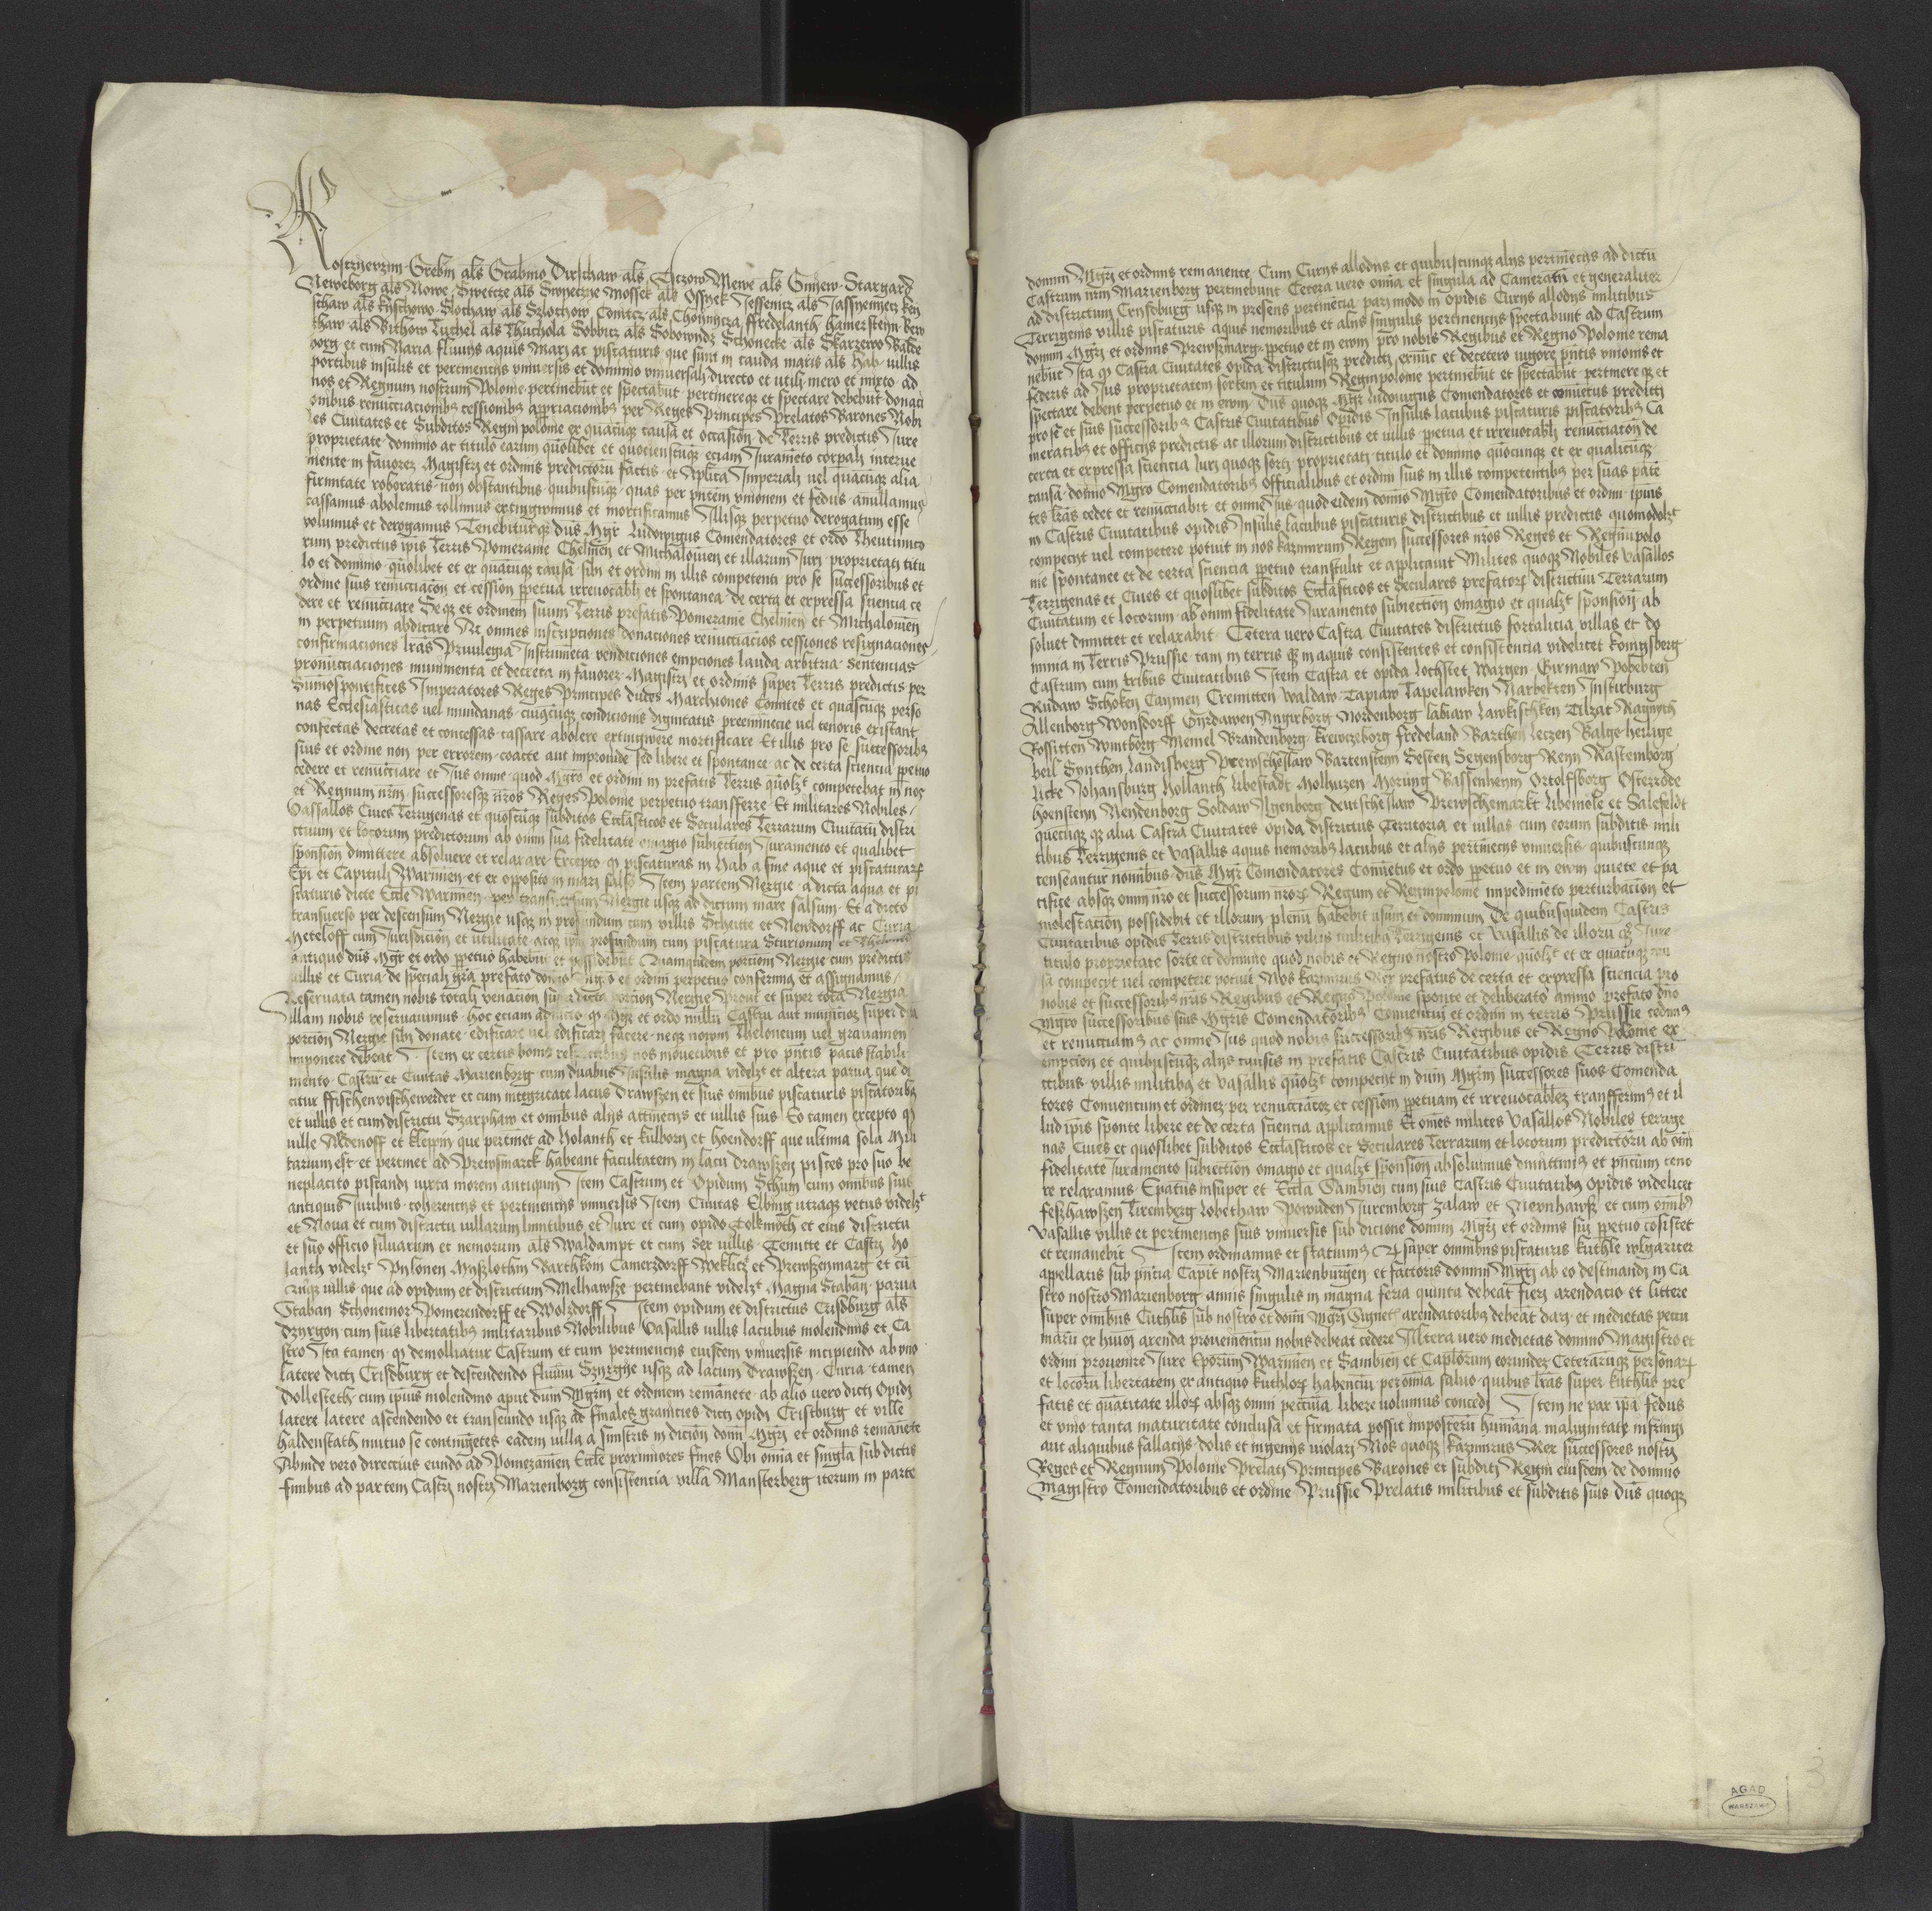 Kostzyerzin Grebin als Grabino Dirschaw als Tczow Mewe als Gnyew Stargard
Neweborg als Nowe Swetcze als Swyeczye Mossek als Ossyek Jessenitz als Jassyenyecz
schaw als Kyschowo Slochaw als Szlochow Conitcz als Choynycza ffredelanth Hamersteyn
thaw als Bithow Tuchel als Thuchola Sobbicz als Sobowydz Schonecke als Skarzewo
borg et cum Varia fluuys aquis Mari ac piscaturis que sunt in cauda maris als Hab villis
portibus insulis et pertinencys vniuersis et dominio vniuersali directo et utili mero et mixto ad
nos et Regnum nostrum Polonie pertinebūt et spectabūt pertinereqȝ et spectare debebūt donaci
onibus renūciacionibȝ cessionibȝ per Reges Principes Prelatos Barones Nobi
les Ciuitates et Subditos Regni polonie ex quacūqȝ causa et occasiōn de Terris predictis Jure
proprietate dominio ac titulo earum quōlibet et quociensciūqȝ eciam Juramēto corpali interue
niente in fauorem Magistri et ordinis predictorū factis et Aplica Imperiali vel quacūqȝ alia
firmitate roboratis non obstantibus quibuscūqȝ quas per pn̄tem vnionem et fedus anullamus
cassamus abolemus tollimus extingwimus et mortificamus Illisqȝ perpetuo derogatum esse
volumus et derogamus Tenebiturqȝ dūs Mgr̄ Ludowigus Comendatores et ordo Theutunico
rum predictus ip̄is Terris Pomeranie Chelmēn et Michalouiēn et illarum Juri proprietati titu
lo et dominio quōlibet et ex quacūqȝ causa sibi et ordini in illis competenti pro se successoribus et
ordine suis renūciaciōn et cessiōn ꝑpetuā irreuocabłi et spontanea de certa et expressa sciencia ce
dere et renūciare Seqȝ et ordinem suum Terris prefatis Pomeranie Chelmēn et Michalouiēn
in perpetuum abdicare Ac omnes inscripciones donaciones renūciacios cessiones resignaciones
confirmaciones lr̄as Priuilegia Instrumēta vendiciones empciones lauda arbitria Sentencias
pronūcciaciones munimenta et decreta in fauorem Magistri et ordinis super Terris predictis per
Summospontifices Imperatores Reges Principes duces Marchiones Comites et quascūqȝ perso
nas Ecclesiasticas vel mundanas cuiuscūqȝ condicionis dignitatis preeminēcie vel tenoris existant
confectas decretas et concessas cassare abolere extingwere mortificare Et illis pro se successoribȝ
suis et ordine non per errorem coacte aut improuide sed libere et spontanee ac de certa sciencia ꝑpetuo
cedere et renūcciare et Jus omne quod Mgro et ordini in prefatis Terris quōlȝt competebat in nos
et Regnum nr̄m successoresqȝ nr̄os Reges Polonie perpetuo transferre Et militares Nobiles
Vassallos Ciues Terrigenas et quoscūqȝ subditos Eccl̄asticos et Seculares Terrarum Ciuitatū distri
ctuum et locorum predictorum ab omni sua fidelitate omagio subiectiōn Juramento et qualibet
sponsiōn dimittere absoluere et relaxare Excepto qȝ piscaturas in Hab a fine aque et piscaturarꝝ
Ep̄i et Capituli Warmien et ex opposito in mari salso Item partem Nergie a dicta aqua et pi
scaturis dicte Eccłe Warmien per transuersum Nergie usqȝ ad dictum mare salsum Et a dicto
transuerso per descensum Nergie usqȝ in profundum cum villis Scheute et Nendorff ac Curia
Meteloff cum Jurisdiciōn et utilitate atqȝ ip̄m profundum cum piscatura Sturionum et
antiquo dūs Mgr̄ et ordo ꝑpetuo habebūt et possidebūt Quamquidem porciōm Nergie cum predictis
villis et Curia de speciali gr̄a prefato domīo Mgro et ordini perpetuo confirmaꝰ et assignamus
Reseruata tamen nobis totali venaciōn super dicta porciōn Nergie Prout et super tota Nergia
illam nobis reseruauimus hoc eciam adiecto qȝ Mgr̄ et ordo nullū Castrū aut municiōȝ super dc̄a
porciōn Nergie sibi donate edificare vel edificari facere neqȝ nouum Theloneum vel grauamen
imponere debeat Item ex certis bonis respectibus nos mouētibus et pro pn̄tis pacis stabili
mento Castrū et Ciuitas Marienborg cum duabus Insulis magna videlȝt et altera parua que di
citur ffischenvischewerder et cum integritate lacus drawszen et suis omībus piscaturis piscatoribȝ
et villis et cum districtu Szarphaw et omnibus alys attinēcys et villis suis Eo tamen excepto qȝ
ville Aldenoff et kleppin que pertinet ad Holanth et kulborn et hoendorff que vltima sola Mili
tarium est et pertinet ad Prewsmarck habeant facultatem in lacu drawszen pisces pro suo be
neplacito piscandi iuxta morem antiquum Item Castrum et Opidum Sthum cum omībus suis
antiquis Juribus coherencys et pertinencys vniuersis Item Ciuitas Elbing utraqȝ vetus videlȝt
et Noua et cum districtu villarum limitibus et Jure et cum opido Tolkmoth et eius districtu
et suo officio siluarum et nemorum als Waldampt et cum sex villis Teuitte et Castri Ho
lanth videlȝt Pylonen Myszlothin Barthkom Camerzdorff Weklicz et Prewszenmarg et cū
cūqȝ villis que ad opidum et districtum Melhawsze pertinebant videlȝt Magna Staban parua
Staban Schonemor Pomerendorff et Wolzdorff Item opidum et districtus Crisdburg als
Dzyrgon cum suis libertatibȝ militaribus Nobilibus Vasallis villis lacubus molendinis et Ca
stro Ita tamen qȝ demoliatur Castrum et cum pertinencys eiusdem vniuersis incipiendo ab vno
latere dicti Crisdburg et descendendo fluuiū Szyrgne usqȝ ad lacum Drawszen Curia tamen
Dollesteth cum ip̄ius molendino aput dūm Mgr̄m et ordinem remanēte ab alio uero dicti Opidi
latere latere ascendendo et transeundo usqȝ ad finales granicies dicti opidi Cristburg et ville
Haldenstath mutuo se contingētes eadem villa a sinistris in diciōn domi Mgri et ordinis remanēte
Abinde vero directius eundo ad Pomezanien Eccłe proximiores fines Vbi omnia et singl̄a sub dictis
finibus ad partem Castri nostri Marienborg consistencia villa Mansterberg iterum in parte
domini Mgri et ordinis remanente Cum Curys allodys et quibuscumqȝ alys pertinēcys ad dictū
Castrum nr̄m Marienborg pertinebunt Cetera uero omīa et singula ad Cameratū et generaliter
ad districtum Crystburg usqȝ in presens pertinēcia pari modo in opidis Curys allodys militibus
Terrigenis villis piscaturis aquis nemoribus et alys singulis pertinencys spectabunt ad Castrum
domini Mgri et ordinis Prewszmarg ꝑpetuo et in ewm pro nobis Regibus et Regno Polonie rema
nebūt Ita qȝ Castra Ciuitates opida districtusqȝ predicti exnūc et decetero iugore pn̄tis vnionis et
federis ad Jus proprietatem sortem et titulum Regnipolonie pertinebūt et spectabūt pertinere qȝ et
spectare debent perpetuo et in ewm Dūs quoqȝ Mgr̄ Ludouigus Comendatores et conuētus predicti
pro se et suis successoribȝ Castris Ciuitatibus Opidis Insulis lacubus piscaturis piscatoribȝ Ca
meratibȝ et officys predictis ac illorum districtibus et villis ꝑpetua et irreuocabłi renūciaciōn de
certa et expressa sciencia Juri quoqȝ sorti proprietati titulo et dominio quocunqȝ et ex qualicūqȝ
causa domīo Mgro Comendatoribȝ officialibus et ordini suis in illis competentibȝ per suas paten
tes lr̄as cedet et renūcciabit et omne Jus quod eidem domīo Mgro Comendatoribus et ordini ip̄ius
in Castris Ciuitatibus opidis Insulis lacubus piscaturis districtibus et villis predictis quomodolȝt
competyt vel competere potuit in nos kazimirum Regem successores nr̄os Reges et Regnūpolo
nie spontanee et de certa sciencia ꝑpetuo transtulit et applicauit Milites quoqȝ Nobiles Vasallos
Terrigenas et Ciues et quoslibet subditos Eccl̄asticos et seculares prefatorꝝ districtuū Terrarum
Ciuitatum et locorum ab omni fidelitate Juramento subiectiōn omagio et qualȝt sponsiōn ab
soluet dimittet et relaxabit Cetera uero Castra Ciuitates districtus fortalicia villas et do
minia in Terris Prussie tam in terris qȝ in aquis consistentes et consistencia videlicet konigsberg
Castrum cum tribus Ciuitatibus Item Castra et opida Lochstet Wargen Girmaw Pobebten
Rudaw Schoken Caymen Cremitten Waldaw Tapiaw Tapelawken Narbekten Instirburg
Allenborg Wonsdorff Gyrdawen Angirborg Nordenborg labiaw Lawkischken Tilzat Ragnyth
Rossitten Wintborg Memel Brandenborg krewczborg Fredeland Barthen leczen Balge heilige
beil Synthen Landisberg Prewscheslaw Bartensteyn Sesten Segensborg Reyn Rastemborg
Licke Johansburg Hollanth Libestadt Molhuzen Morung Bassenheym Ortolfsborg Osterrode
hoensteyn Neydenborg Soldaw Ilgenborg deutscheslaw Prewschemarkt Libemole et Salefeldt
quecūqȝ qȝ alia Castra Ciuitates opida districtus Territoria et villas cum eorum subditis mili
tibus Terrigenis et Vasallis aquis nemoribȝ lacubus et alys pertinēcys vniuersis quibuscunqȝ
censeantur nominibus dūs Mgr̄ Comendatores Conuētus et ordo ꝑpetuo et in ewm quiete et pa
cifice absqȝ omni nr̄o et successorum nr̄orꝝ Regum et Regnipolonie impedimēto perturbaciōn et
molestaciōn possidebit et illorum plenū habebit usum et dominium De quibusquidem Castris
Ciuitatibus opidis Terris districtibus villis militibȝ Terrigenis et Vasallis de illorū qȝ Jure
titulo proprietate sorte et dominio quod nobis et Regno nostro Polonie quōlȝt et ex quacūqȝ cau
sa competyt vel competere potuit Nos kazimirus Rex prefatus de certa et expressa sciencia pro
nobis et successoribȝ nr̄is Regibus et Regno Polonie sponte et deliberato animo prefato dn̄o
Mgro successoribus suis Mgris Comendatoribȝ Conuentui et ordini in terris Prussie cedimꝰ
et renūciamꝰ ac omne Jus quod nobis successoribȝ nr̄is Regibus et Regno Polonie ex
empciōn et quibuscūqȝ alys causis in prefatis Castris Ciuitatibus opidis Terris distri
ctibus villis militibȝ et Vasallis quōlȝt competyt in dūm Mgr̄m successores suos Comenda
tores Conuentum et ordineȝ per renūciaciōeȝ et cessiōm ꝑpetuam et irreuocabłeȝ transferimꝰ et il
lud ip̄is sponte libere et de certa sciencia applicamus Et omēs milites Vasallos Nobiles terrige
nas Ciues et quoslibet subditos Eccl̄asticos et Seculares Terrarum et locorum predictorū ab om̄i
fidelitate Juramento subiectiōn omagio et qualȝt sponsiōn absoluimus dimittimꝰ et pn̄cium teno
re relaxamus Epatūs insuper et Eccl̄a Sambien cum suis Castris Ciuitatibȝ opidis videlicet
feszhawszen Tiremberg Lobethaw Powuden Juremborg Zalaw et Newnhawsz et cum omībȝ
Vasallis villis et pertinencys suis vniuersis sub dicione domini Mgri et ordinis sui ꝑpetuo cosistet
et remanebit Item ordinamus et statuimꝰ qȝ super omnibus piscaturis kuthle wlgariter
appellatis sub pn̄cia Capit nostri Marienburgen et factoris domini Mgri ab eo destinandi in Ca
stro nostro Marienborg annis singulis in magna feria quinta debeat fieri arendacio et littere
super omībus Cuthlis sub nostro et domī Mgri Signet arendatoribȝ debeāt dari et medietas pecu
niarū ex huiusmodi arenda prouenientiū nobis debeat cedere Altera uero medietas domino Magistro et
ordini prouenire Jure Eporum Warmien et Sambien et Caplorum eorundeȝ Ceterarūqȝ personarꝝ
et locorū libertatem ex antiquo kuthlorꝝ habenciū per omīa saluo quibus lr̄as super kuthlis pre
fatis et quātitate illorꝝ absqȝ omni pecunia libere uolumus concedi Item ne par ip̄a fedus
et vnio tanta maturitate conclusa et firmata possit imposterū humāna malignitate infringi
aut aliquibus fallacys dolis et ingenys violari Nos quoqȝ kazimirus Rex successores nostri
Reges et Regnum Polonie Prelati Principes Barones et subditi Regni eiusdem de domino
Magistro Comendatoribus et ordine Prussie Prelatis militibus et subditis suis dūs quoqȝ
3
AGAD
WARSZAWA